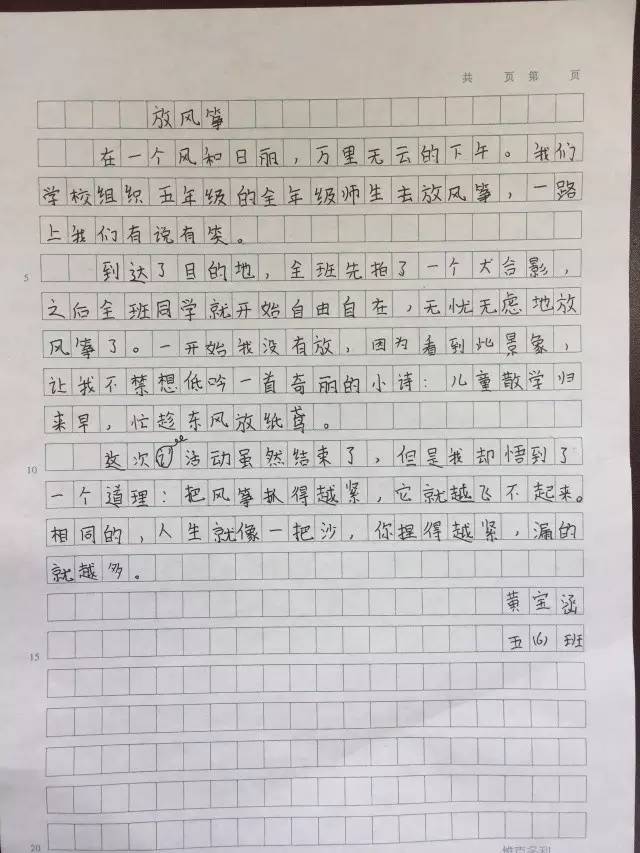 共 页 第 页
放风筝
在一个风和日丽，万里无云的下午。我们
学校组织五年级的全年级师生去放风筝，一路
上我们有说有笑。
5
到达了目的地，全班先拍了一个大合影，
之后全班同学就开始自由自在，无忧无虑地放
风筝了。一开始我没有放，因为看到此景象，
让我不禁想低吟一首奇丽的小诗：儿童散学归
来早，忙趁东风放纸鸢。
10
这次活动虽然结束了，但是我却悟到了
一个道理：把风筝抓得越紧，它就越飞不起来。
相同的，人生就像一把沙，你捏得越紧，漏的
就越多。
黄宝涵
五(6)班
15
20